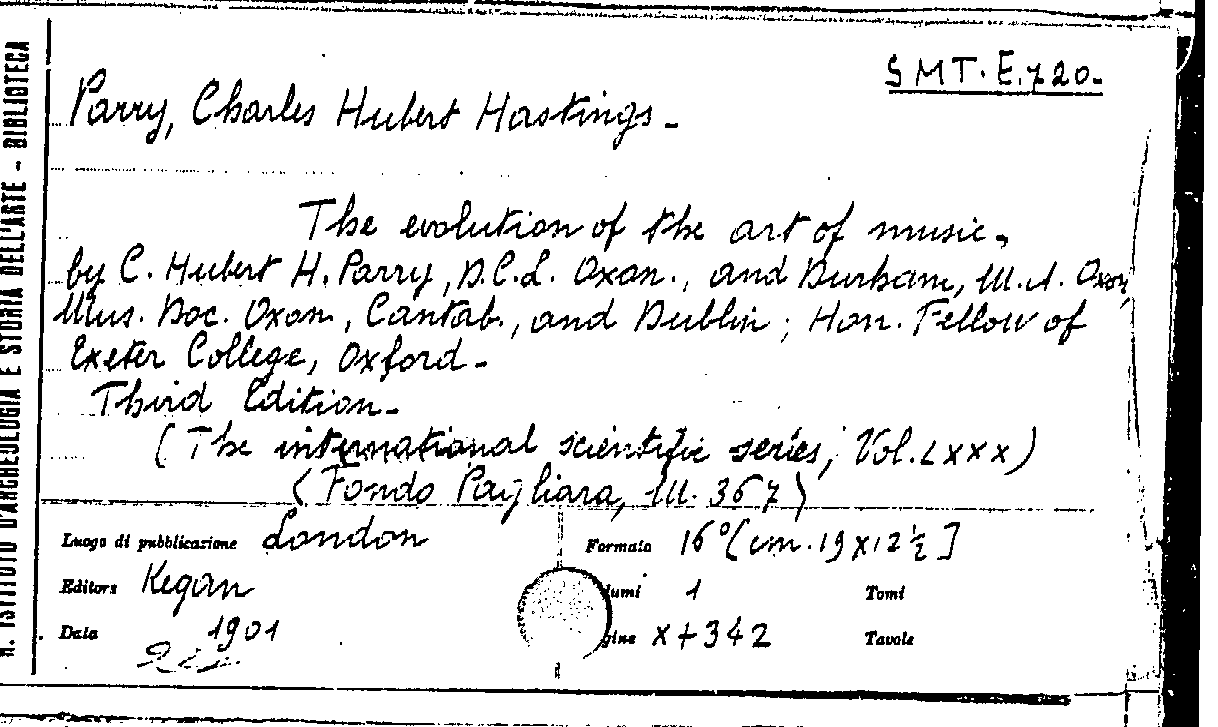 SMT. E.720-
Parry, Charles Hubert Hastings -
The evolution of the art of music,
by C. Hubert H. Parry, D.C.L. Oxon., and Durham, M.A. Oxon,
Mus. Doc. Oxon, Cantab., and Dublin; Hon. Fellow of
Exeter College, Oxford -
Third Edition -
(The international scientific series, Vol. LXXX)
(Fondo Pagliara, M. 367)
Luogo di pubblicazione London
Formato 16° [cm. 19x12 ½]
Editore Kegan
lumi 1 Tomi
Data 1901
gine X+342 Tavole
R. ISTITUTO D'ARCHEOLOGIA E STORIA DELL'ARTE - BIBLIOTECA